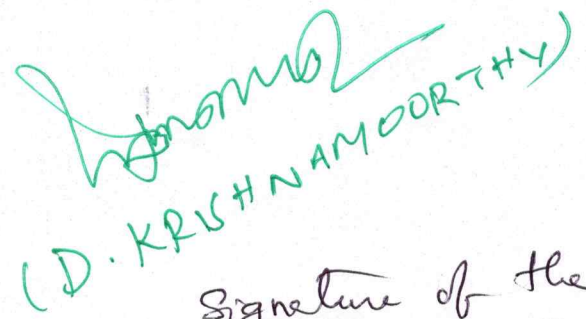 (D. KRISHNAMOORTHY)
Signature of the